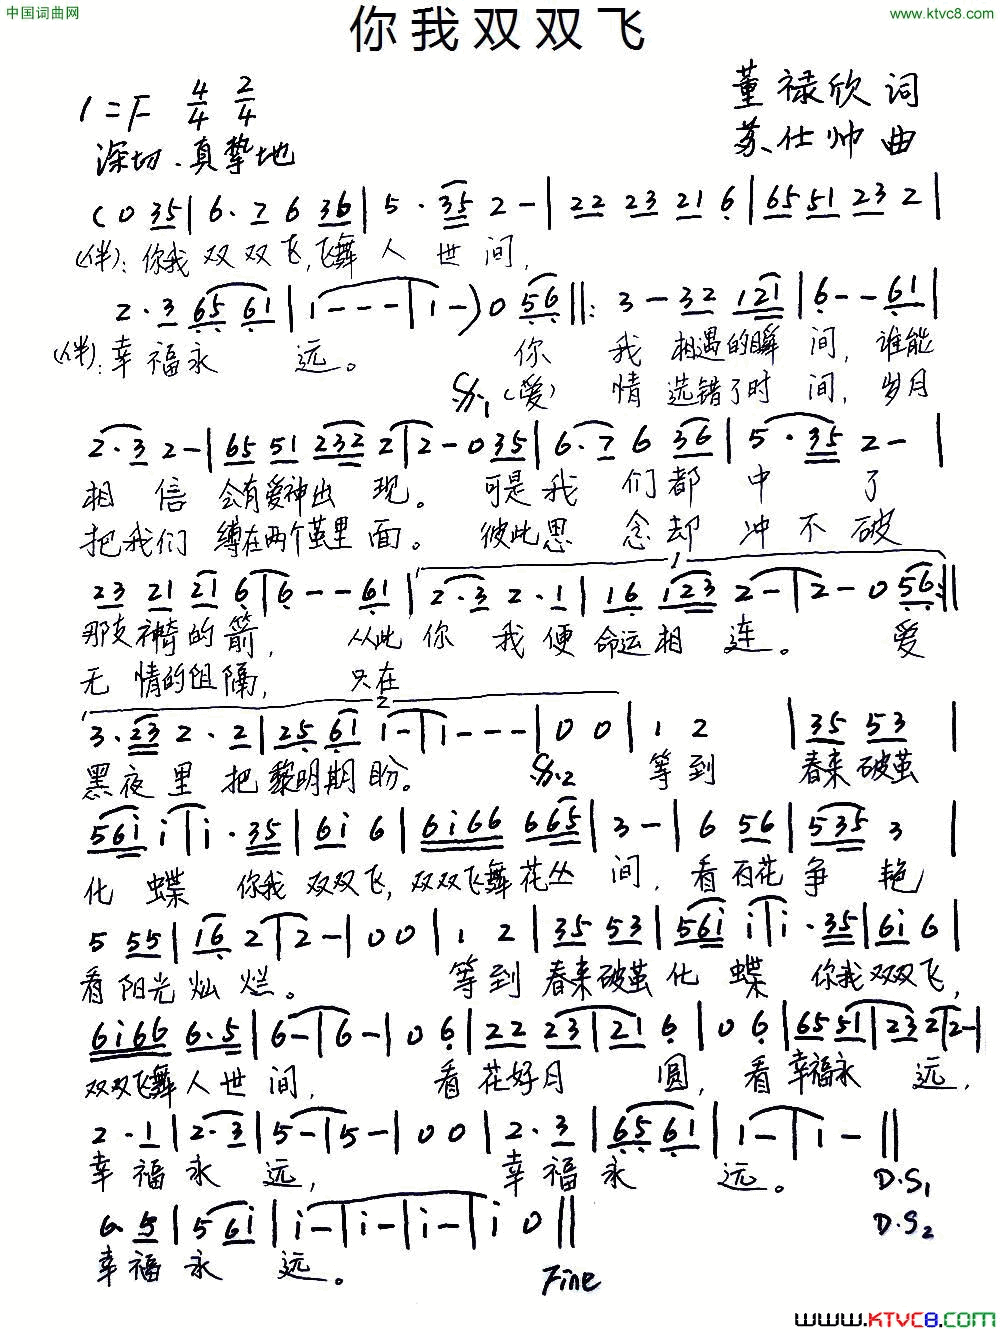 中国词曲网
www.ktvc8.com
你我双双飞
1=F 4/4 2/4
董禄欣 词
苏仕帅 曲
深切、真挚地
(0 35 | 6·7 6 36 | 5·35 2 - | 22 23 21 6 | 65 51 23 2 |
(伴):你我双双飞,飞舞人世间,
2·3 65 61 | 1 - - - | 1 -) 0 56 ||: 3 - 32 121 | 6 - - 61 |
(伴):幸福永远。 你 我 相遇的瞬间,谁能
𝄋1 (爱) 情 选错了时间,岁月
2·3 2 - | 65 51 232 2 | 2 - 0 35 | 6·7 6 36 | 5·35 2 - |
相信会有爱神出现。 可是我们都中了
把我们缚在两个茧里面。 彼此思念却冲不破
23 21 21 6 | 6 - - 61 | 2·3 2·1 | 16 123 2 - | 2 - 0 56 :||
1
那支神奇的箭, 从此你我便命运相连。 爱
无情的阻隔, 只在
2
3·23 2·2 | 25 61 1 - | 1 - - - | 0 0 | 1 2 | 35 53 |
黑夜里把黎明期盼。 𝄋2 等到 春来破茧
561 i | i·35 | 6i 6 | 6i66 665 | 3 - | 6 56 | 535 3 |
化蝶 你我双双飞,双双飞舞花丛间,看百花争艳
5 55 | 16 2 | 2 - | 0 0 | 1 2 | 35 53 | 56i i | i·35 | 6i 6 |
看阳光灿烂。 等到春来破茧化蝶 你我双双飞,
6i66 6·5 | 6 - | 6 - | 0 6 | 22 23 | 21 6 | 0 6 | 65 51 | 23 2 | 2 - |
双双飞舞人世间, 看花好月圆,看幸福永远,
2·1 | 2·3 | 5 - | 5 - | 0 0 | 2·3 | 65 61 | 1 - | 1 - ||
幸福永远, 幸福永远。 D.S1
D.S2
6·5 | 5 6i | i - | i - | i - | i 0 ||
幸福永远。 Fine
www.KTVC8.com